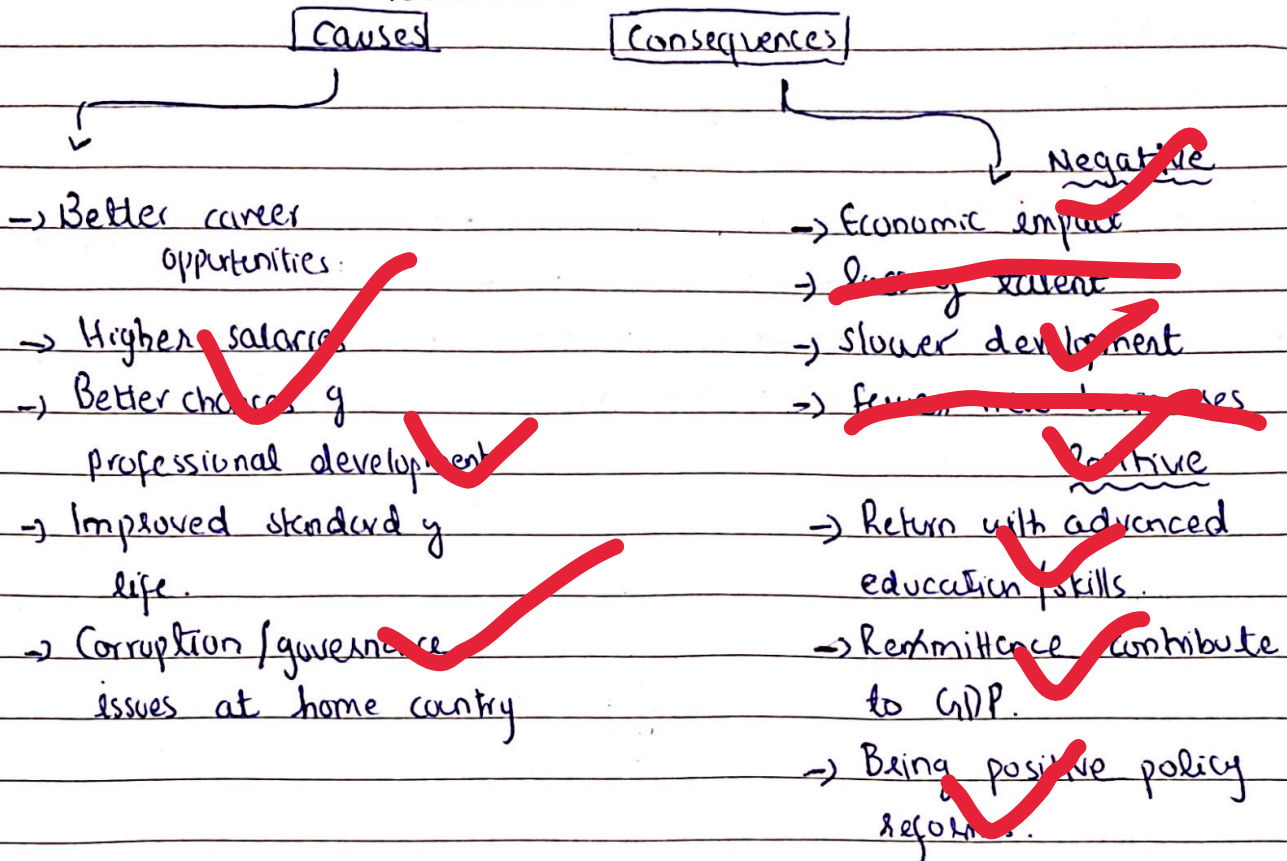 Causes
Consequences
-> Better career
oppurtenities.
-> Higher salaries
-> Better chances of
professional development
-> Improved standard of
life.
-> Corruption/governance
issues at home country
Negative
-> Economic impact
-> loss of talent
-> slower development
-> fewer new businesses
Positive
-> Return with advanced
education/skills.
-> Remmittence contribute
to GDP.
-> Being positive policy
reforms.